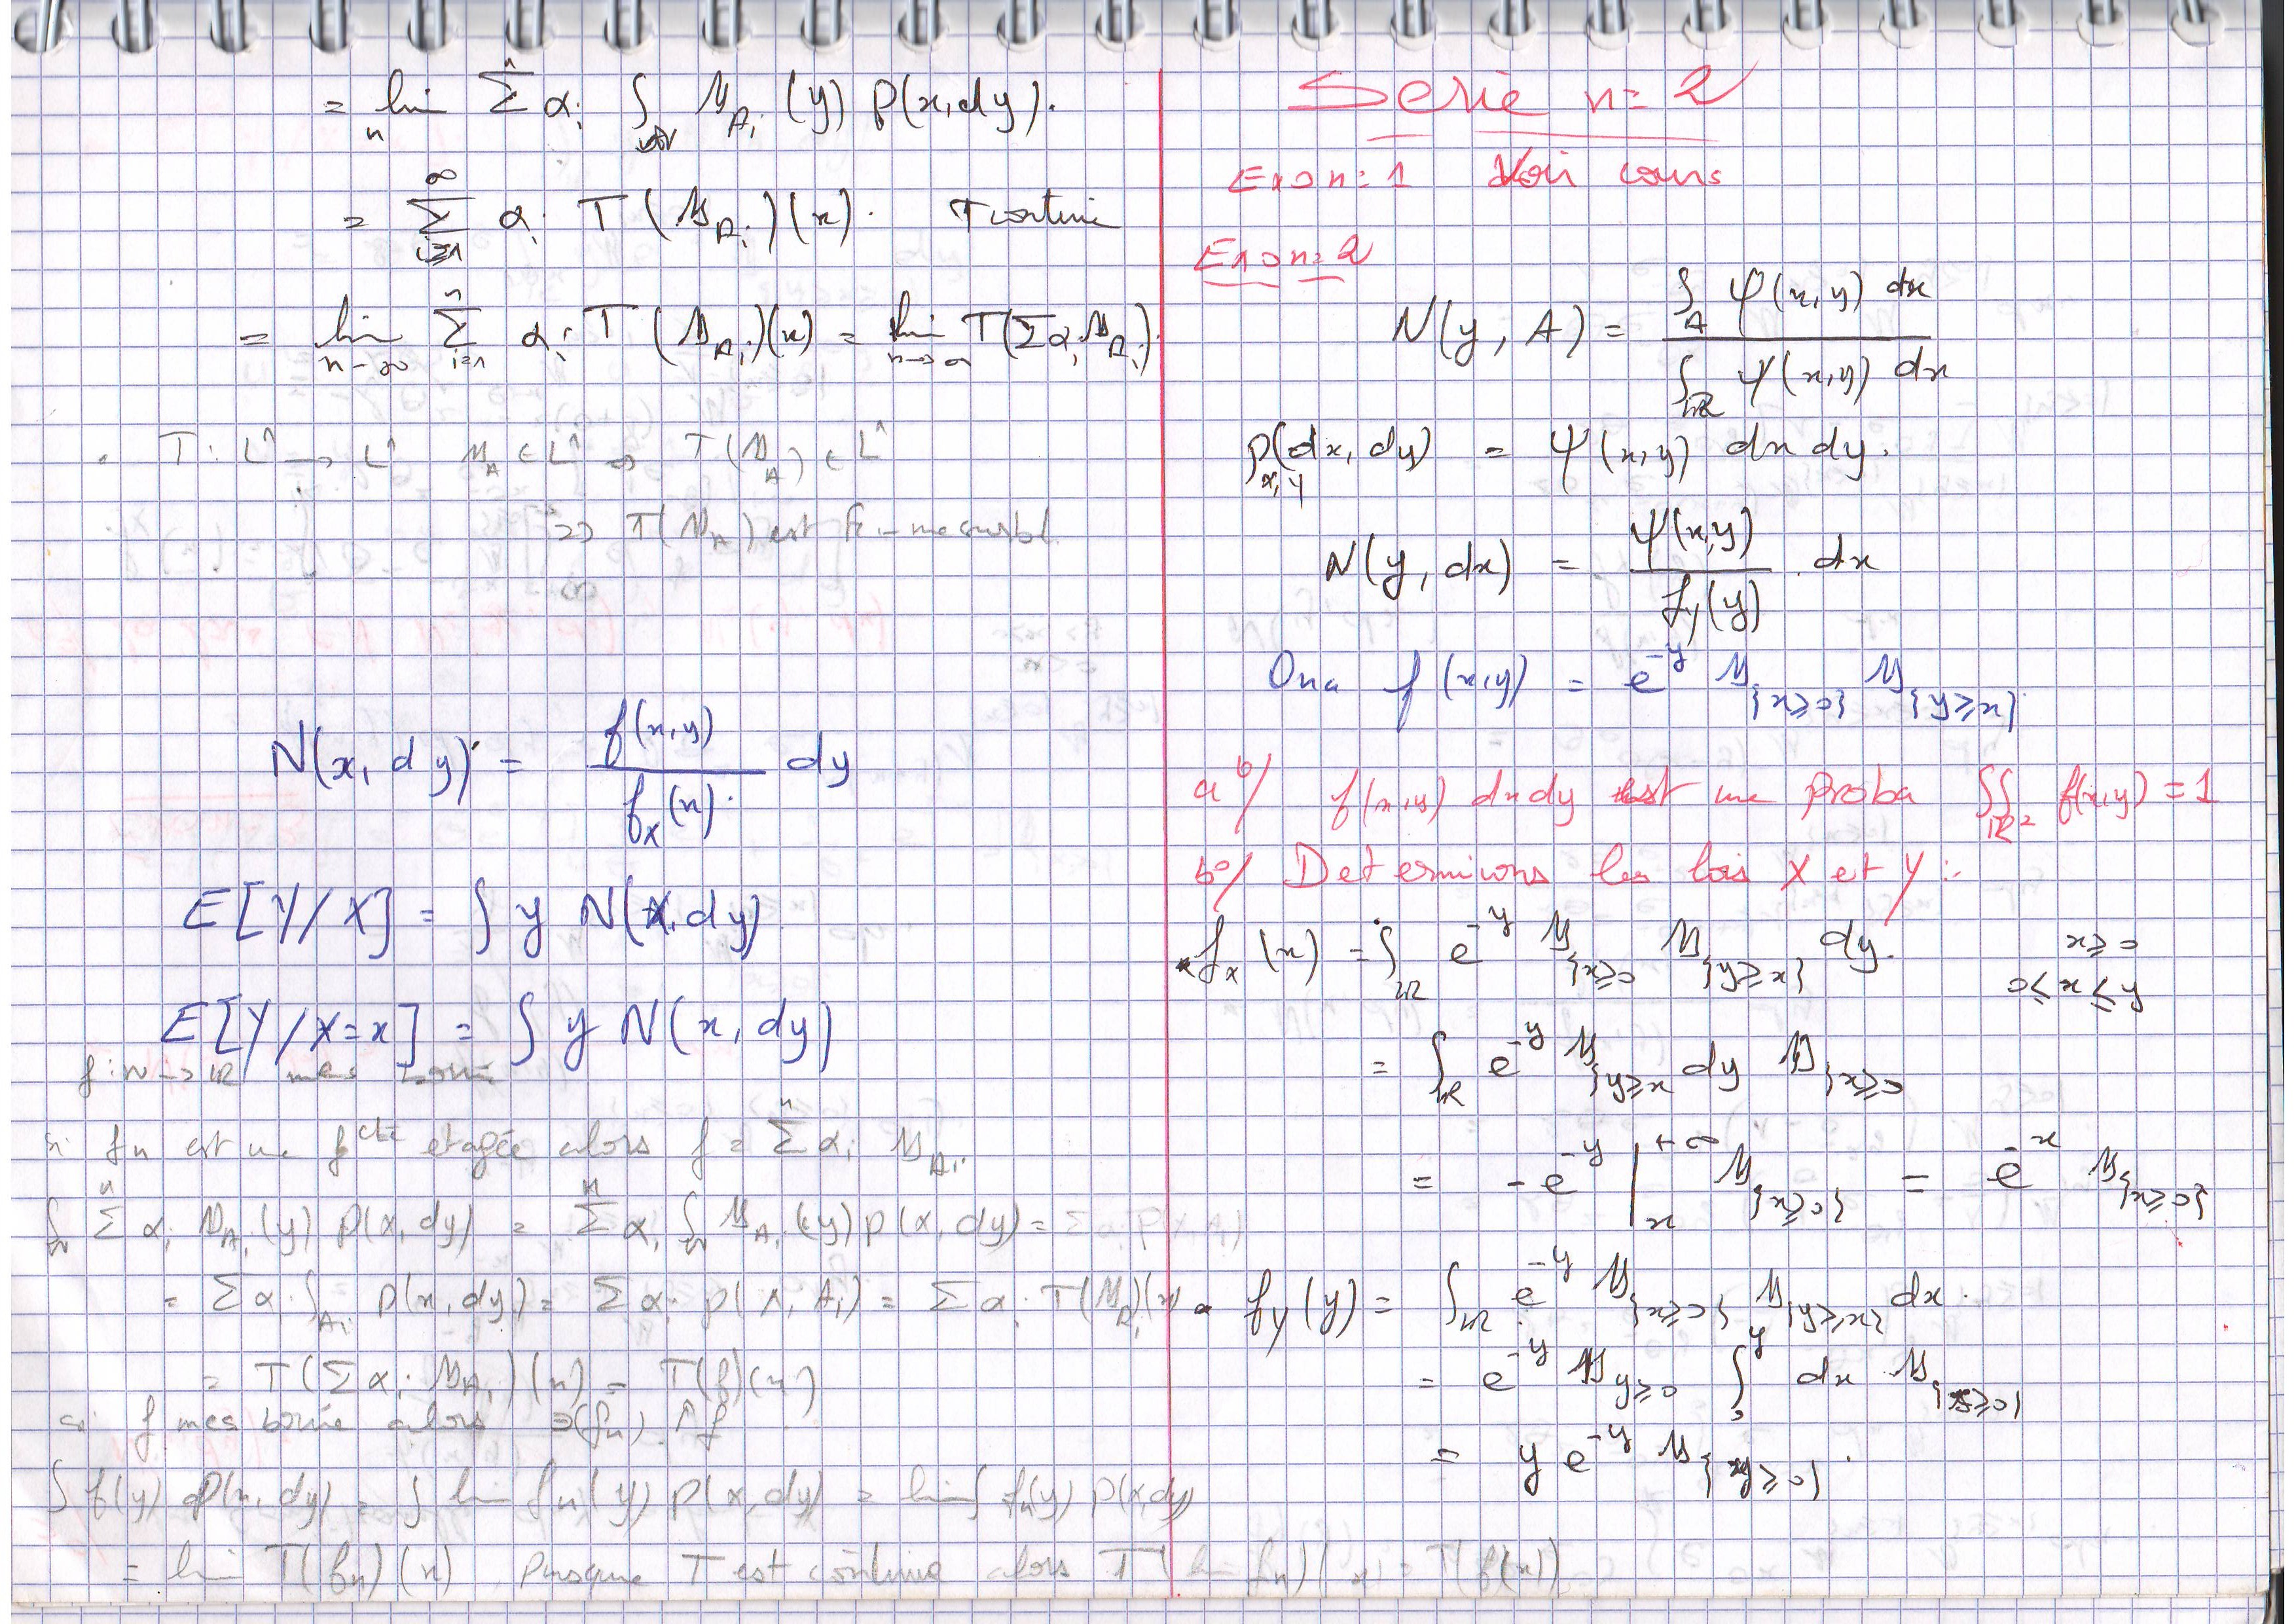 = lim_n Σ^n α_i ∫_ℕ 𝟙_{A_i}(y) P(x,dy).
= Σ_{i≥1}^∞ α_i T(𝟙_{A_i})(x). T continue
= lim_{n→∞} Σ_{i=1}^n α_i T(𝟙_{A_i})(x) = lim_{n→∞} T(Σα_i 𝟙_{A_i}).
• T: L^1 → L^1 𝟙_A ∈ L^1 ⇒ T(𝟙_A) ∈ L^1
⇒ T(𝟙_A) est -mesurabl
N(x, dy) = f(x,y) / f_X(x) dy
E[Y/X] = ∫ y N(X, dy)
E[Y/X=x] = ∫ y N(x, dy)
f: ℕ → ℝ mes borné
si fn est une fcté etagée alors f = Σ^n α_i 𝟙_{A_i}.
∫_ℕ Σ^n α_i 𝟙_{A_i}(y) P(x,dy) = Σ^n α_i ∫_ℕ 𝟙_{A_i}(y) P(x,dy) = Σ α_i P(x,A_i)
= Σ α_i ∫_{A_i} P(x,dy) = Σ α_i P(x, A_i) = Σ α_i T(𝟙_{A_i})(x)
= T(Σ α_i 𝟙_{A_i})(x) = T(f)(x)
si f mes bornée alors ∃(f_n) ↑ f
∫ f(y) P(x,dy) = ∫ lim f_n(y) P(x,dy) = lim ∫ f_n(y) P(x,dy)
= lim T(f_n)(x) Puisque T est continue alors T(lim f_n)(x) = T(f(x))
Serie n=2
Exo n=1 Voir cours
Exo n=2
N(y, A) = ∫_A ψ(x,y) dx / ∫_ℝ ψ(x,y) dx
P_{X,Y}(dx, dy) = ψ(x,y) dx dy.
N(y, dx) = ψ(x,y) / f_Y(y) . dx
Ona f(x,y) = e^{-y} 𝟙_{x≥0} 𝟙_{y≥x}
a°/ f(x,y) dxdy est une proba ∬_{ℝ²} f(x,y) = 1
b°/ Determinons les lois X et Y :
• f_X(x) = ∫_ℝ e^{-y} 𝟙_{x≥0} 𝟙_{y≥x} dy. x≥0
0≤x≤y
= ∫_ℝ e^{-y} 𝟙_{y≥x} dy 𝟙_{x≥0}
= -e^{-y} |_x^{+∞} 𝟙_{x≥0} = e^{-x} 𝟙_{x≥0}
• f_Y(y) = ∫_ℝ e^{-y} 𝟙_{x≥0} 𝟙_{y≥x} dx.
= e^{-y} 𝟙_{y≥0} ∫_0^y dx 𝟙_{x≥0}
= y e^{-y} 𝟙_{y≥0}.